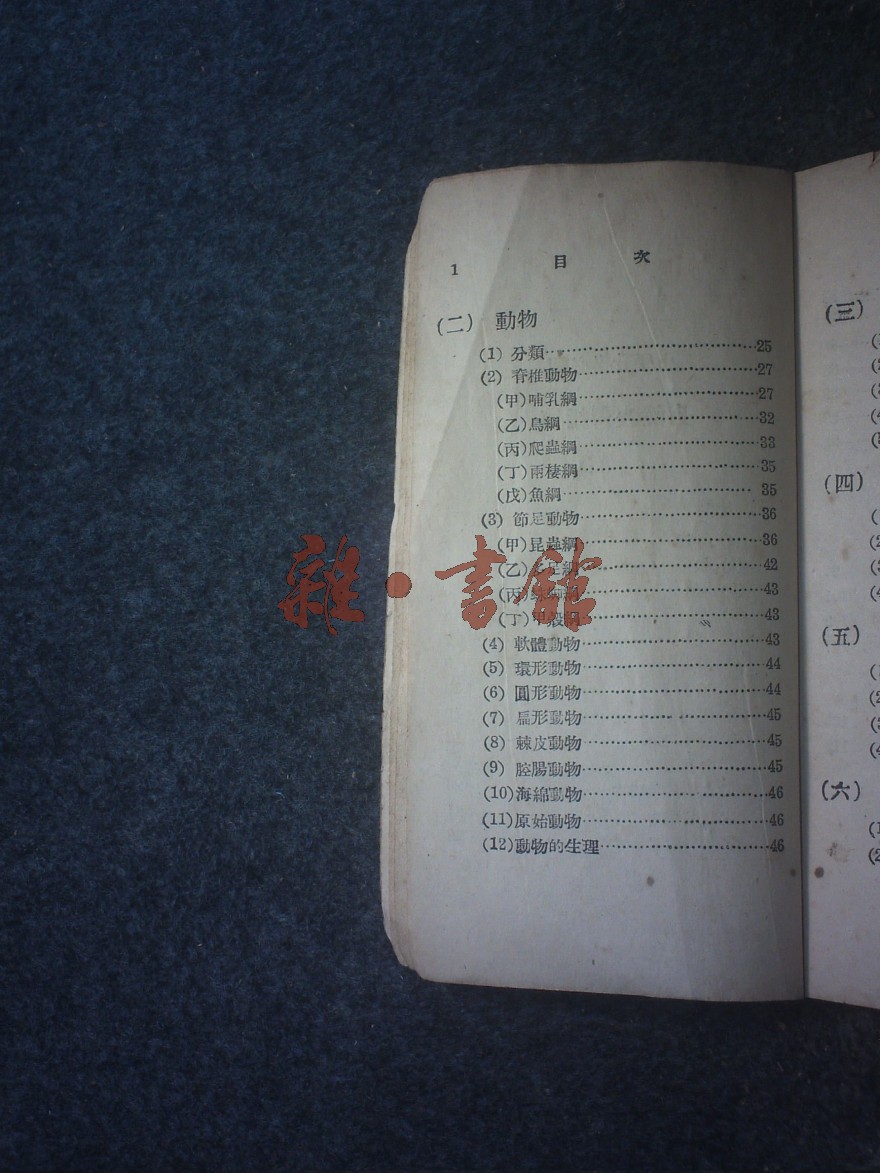 1 目 次
(二) 動物
(1) 分類…………………………25
(2) 脊椎動物……………………27
(甲)哺乳綱……………………27
(乙)鳥綱………………………32
(丙)爬蟲綱……………………33
(丁)兩棲綱……………………35
(戊)魚綱………………………35
(3) 節足動物……………………36
(甲)昆蟲綱……………………36
(乙)足綱……………………42
(丙)綱……………………43
(丁)甲殼綱……………………43
(4) 軟體動物……………………43
(5) 環形動物……………………44
(6) 圓形動物……………………44
(7) 扁形動物……………………45
(8) 棘皮動物……………………45
(9) 腔腸動物……………………45
(10)海綿動物……………………46
(11)原始動物……………………46
(12)動物的生理…………………46
(三)
(四)
(五)
(六)
雜·書館